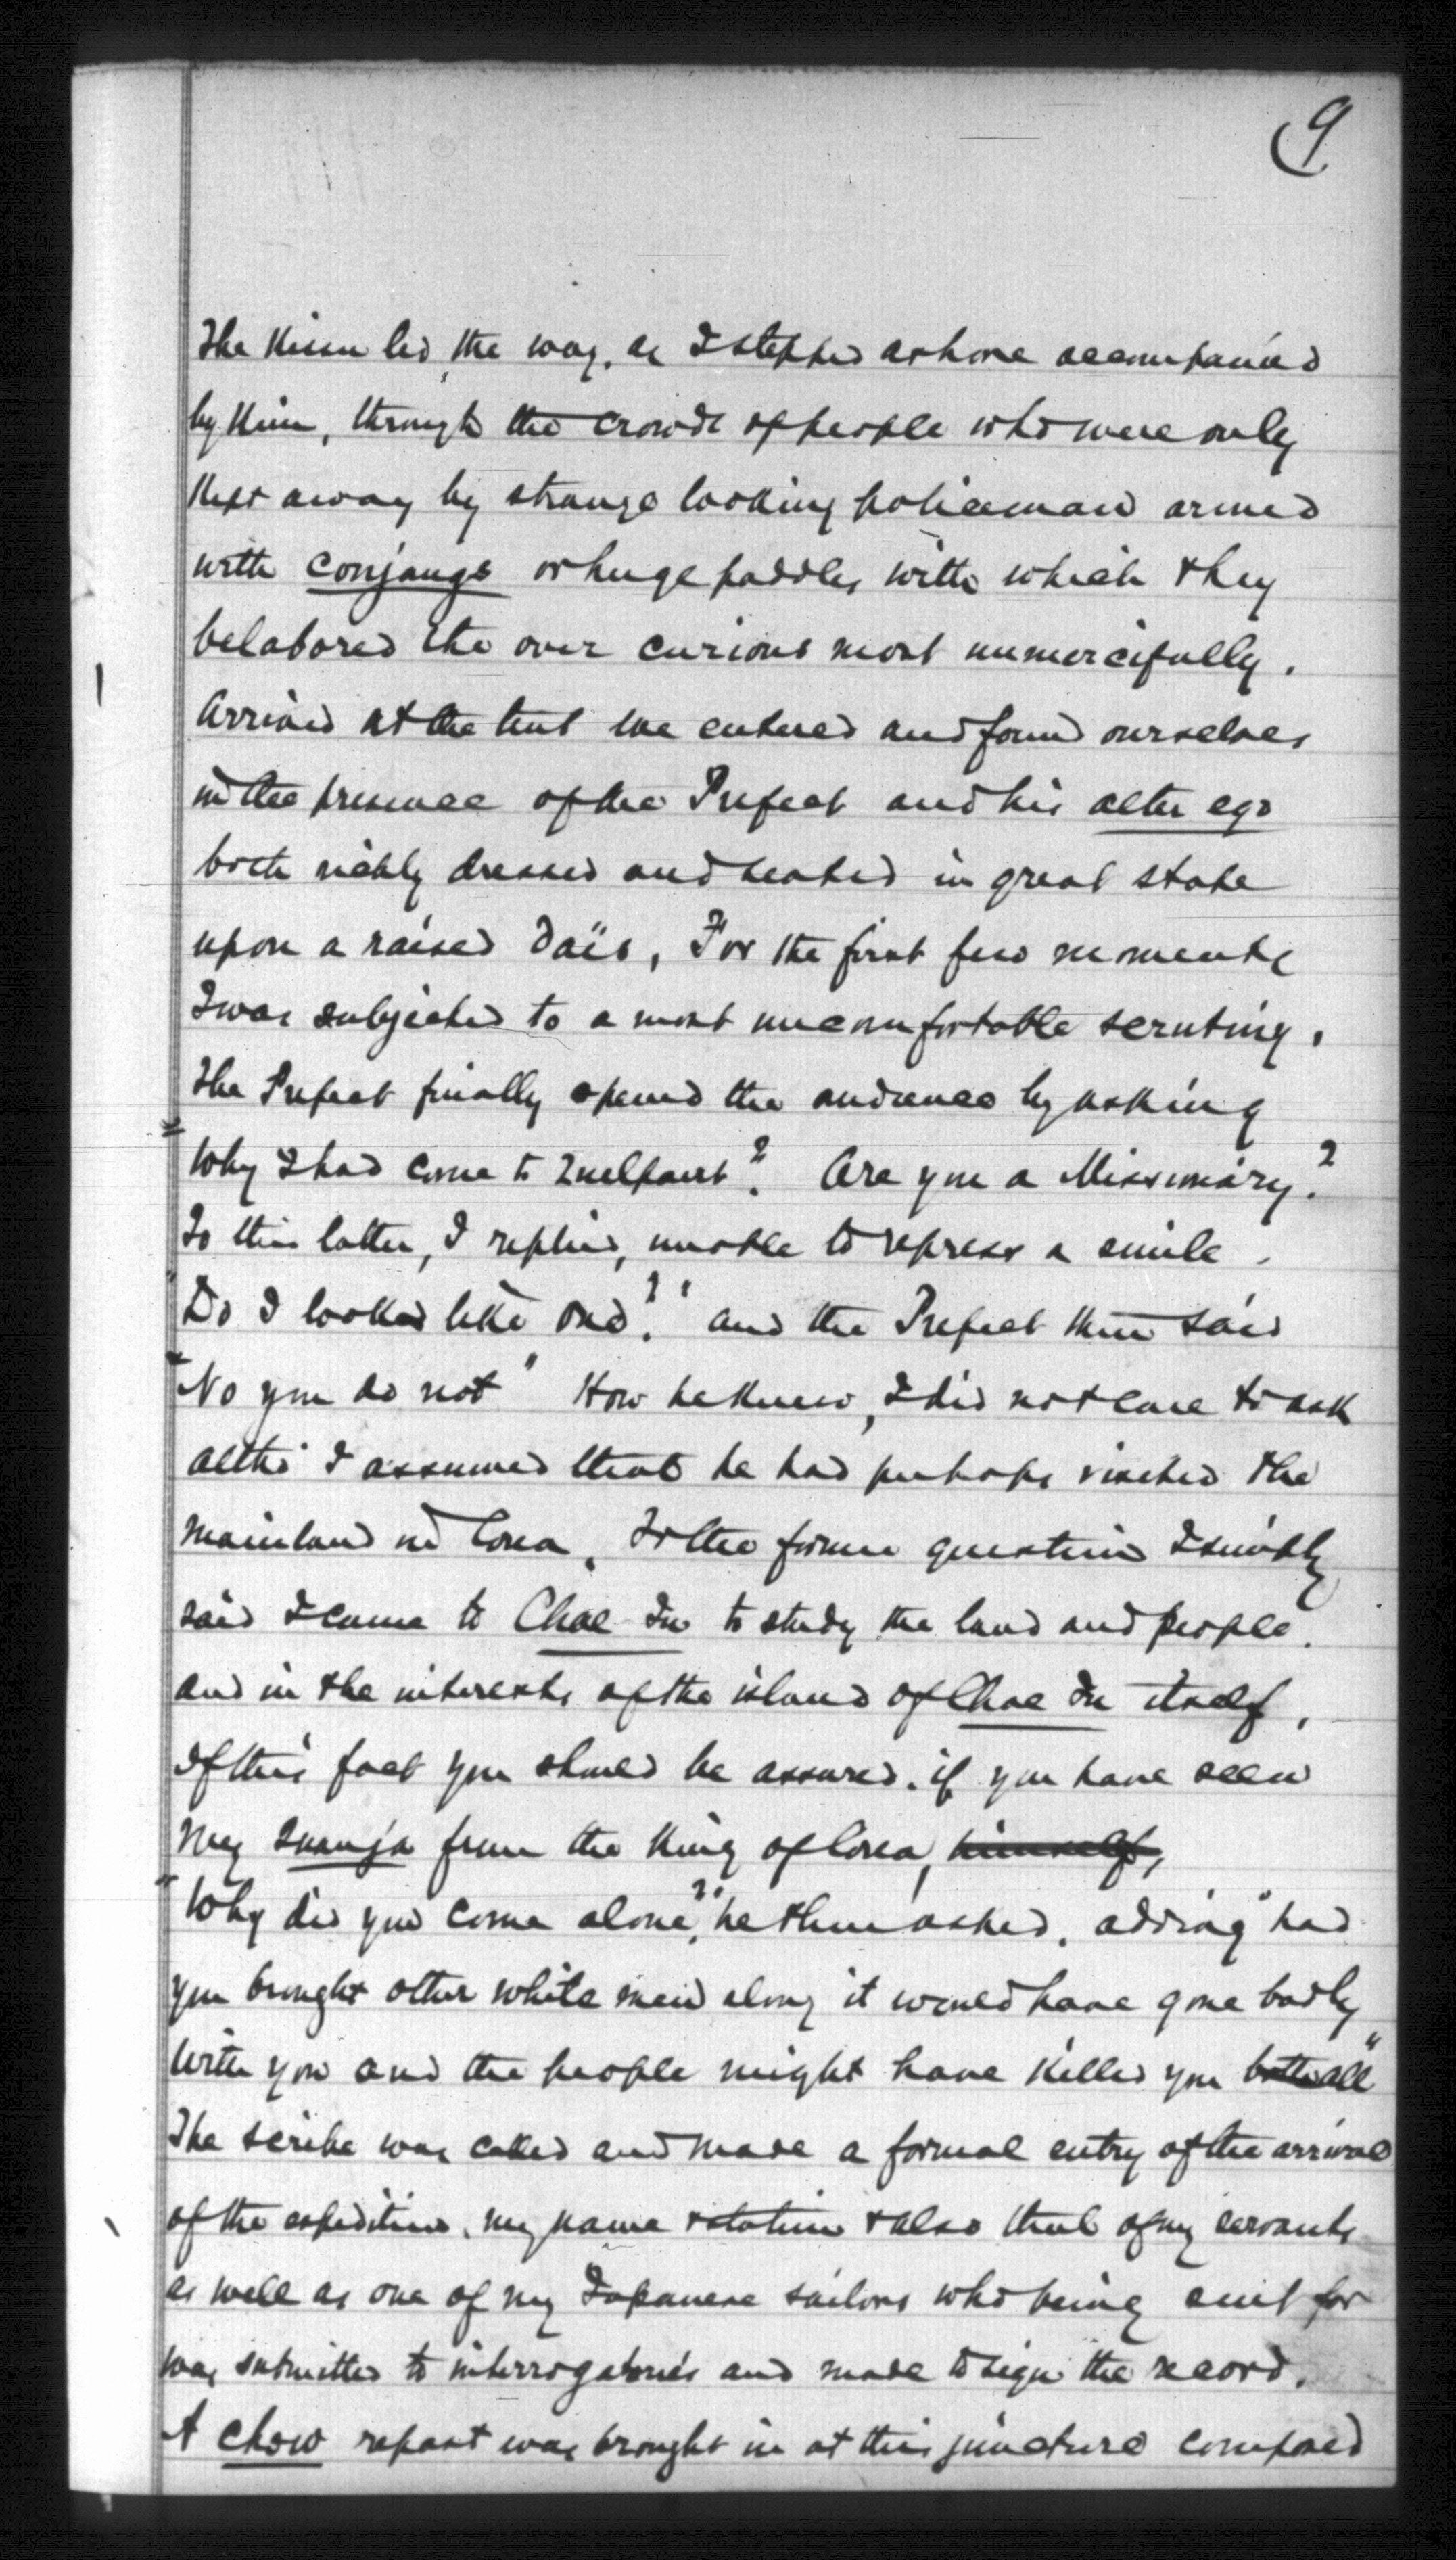 9
The Kissu led the way, as I stepped ashore accompanied
by Kim, through the crowds of people who were only
kept away by strange looking policeman armed
with conjangs or huge paddles with which they
belabored the over curious most unmercifully.
Arrived at the tent we entered and found ourselves
in the presence of the Prefect and his alter ego
both richly dressed and seated in great state
upon a raised daïs, For the first few moments
I was subjected to a most uncomfortable scrutiny.
The Prefect finally opened the audience by asking
"Why I had come to Quelpart? Are you a Missionary?
To this latter, I replied, unable to repress a smile.
"Do I looked like one?" and the Prefect then said
"No you do not" How he knew, I did not care to ask
altho' I assumed that he had perhaps visited the
mainland in Corea. To the former question I simply
said I came to Chae Ju to study the land and people.
and in the interests of the island of Chae Ju itself,
Of this fact you should be assured. if you have seen
my Quanja from the King of Corea, himself,
"Why did you come alone?" he then asked. adding "had
you brought other white men along it would have gone badly
with you and the people might have killed you both all"
The scribe was called and made a formal entry of the arrival
of the expedition, my name station & also that of my servants
as well as one of my Japanese sailors who being sent for
was submitted to interrogatories and made to sign the record.
A chow repast was brought in at this juncture composed